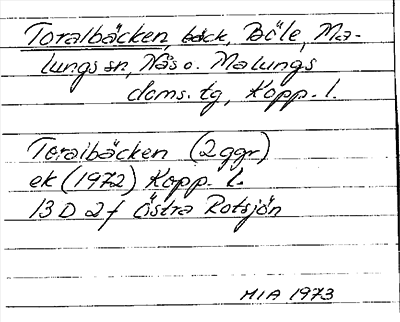 Toralbäcken, bäck, Böle, Ma-
lungs sn, Nås o. Malungs
doms. tg, Kopp. l.
Toralbäcken (2 ggr)
ek (1972) Kopp. l.
13 D 2 f Östra Rotsjön
MIA 1973